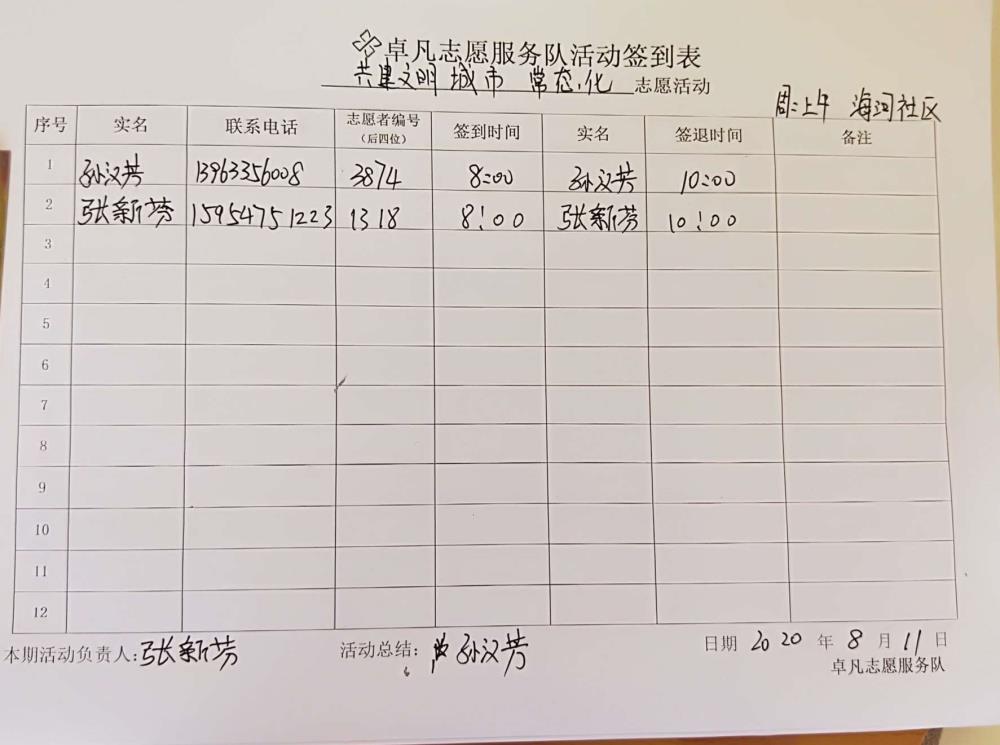 卓凡志愿服务队活动签到表
共建文明城市 常态化 志愿活动
周二上午 海河社区
序号 实名 联系电话 志愿者编号（后四位） 签到时间 实名 签退时间 备注
1 孙汉芳 13963356008 3874 8:00 孙汉芳 10:00
2 张新芳 15954751223 1318 8:00 张新芳 10:00
3
4
5
6
7
8
9
10
11
12
本期活动负责人:张新芳 活动总结: 孙汉芳 日期 2020 年 8 月 11 日
卓凡志愿服务队